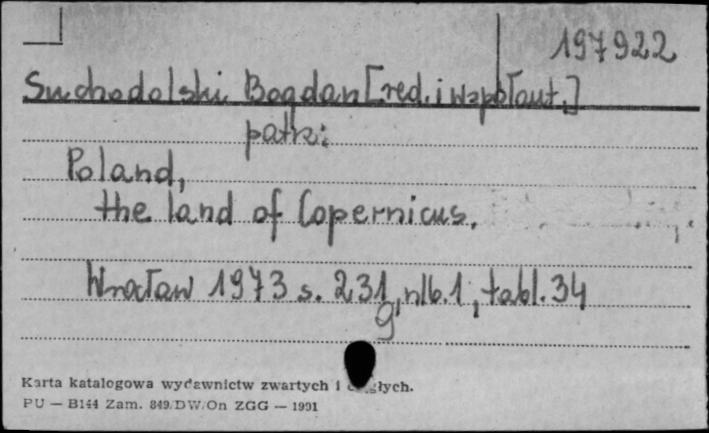 197922
Suchodolski Bogdan [red. i współaut.]
patrz:
Poland,
the land of Copernicus.
Wrocław 1973 s. 231, nlb. 1, tabl. 34
g
Karta katalogowa wydawnictw zwartych i ciągłych.
PU — B144 Zam. 849/DW/On ZGG — 1991